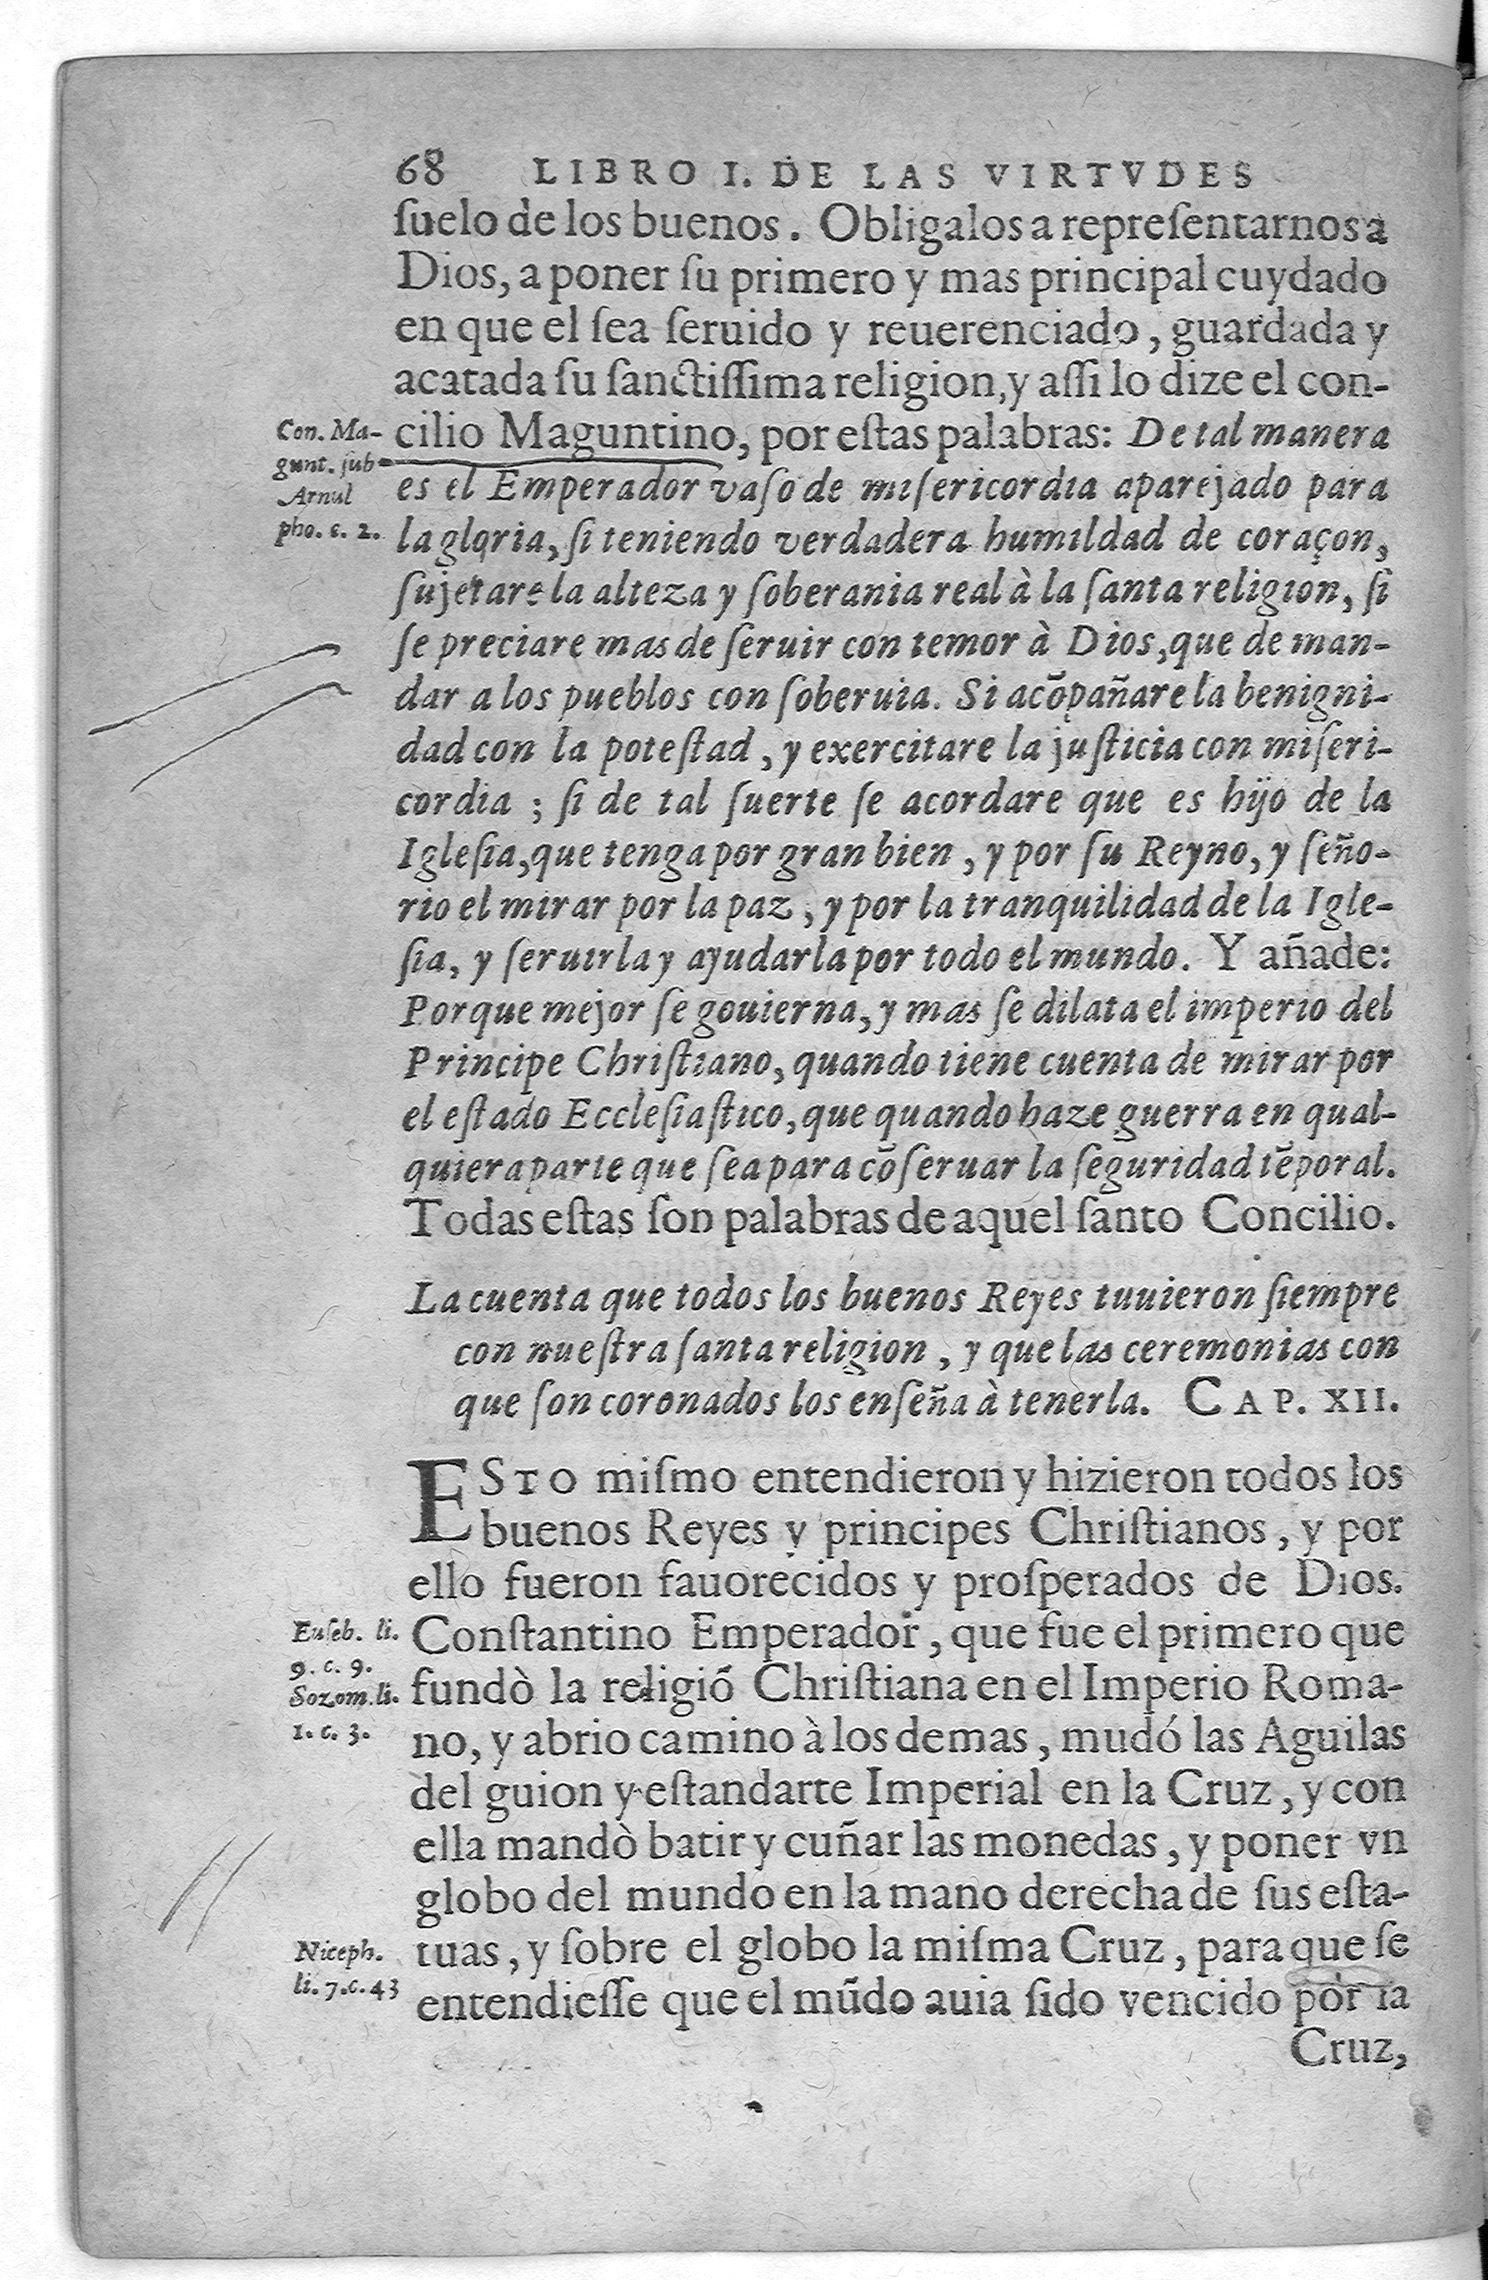 68 LIBRO I. DE LAS VIRTVDES
ſuelo de los buenos. Obligalos a repreſentarnos a
Dios, a poner ſu primero y mas principal cuydado
en que el ſea ſeruido y reuerenciado, guardada y
acatada ſu ſanctiſſima religion, y aſſi lo dize el con-
Con. Ma-
gunt. ſub
Arnul
pho. c. 2.
cilio Maguntino, por eſtas palabras: De tal manera
es el Emperador vaſo de miſericordia aparejado para
la gloria, ſi teniendo verdadera humildad de coraçon,
ſujetare la alteza y ſoberania real à la ſanta religion, ſi
ſe preciare mas de ſeruir con temor à Dios, que de man-
dar a los pueblos con ſoberuia. Si acõpañare la benigni-
dad con la poteſtad, y exercitare la juſticia con miſeri-
cordia ; ſi de tal ſuerte ſe acordare que es hijo de la
Igleſia, que tenga por gran bien, y por ſu Reyno, y ſeño-
rio el mirar por la paz, y por la tranquilidad de la Igle-
ſia, y ſeruirla y ayudarla por todo el mundo. Y añade:
Porque mejor ſe gouierna, y mas ſe dilata el imperio del
Principe Chriſtiano, quando tiene cuenta de mirar por
el eſtado Eccleſiaſtico, que quando haze guerra en qual-
quiera parte que ſea para cõſeruar la ſeguridad tẽporal.
Todas eſtas ſon palabras de aquel ſanto Concilio.
La cuenta que todos los buenos Reyes tuuieron ſiempre
con nueſtra ſanta religion, y que las ceremonias con
que ſon coronados los enſeña à tenerla. CAP. XII.
ESTO miſmo entendieron y hizieron todos los
buenos Reyes y principes Chriſtianos, y por
ello fueron fauorecidos y proſperados de Dios.
Euſeb. li.
9. c. 9.
Sozom. li.
1. c. 3.
Conſtantino Emperador, que fue el primero que
fundò la religiõ Chriſtiana en el Imperio Roma-
no, y abrio camino à los demas, mudó las Aguilas
del guion y eſtandarte Imperial en la Cruz, y con
ella mandò batir y cuñar las monedas, y poner vn
globo del mundo en la mano derecha de ſus eſta-
Niceph.
li. 7. c. 43
tuas, y ſobre el globo la miſma Cruz, para que ſe
entendieſſe que el mũdo auia ſido vencido por la
Cruz,